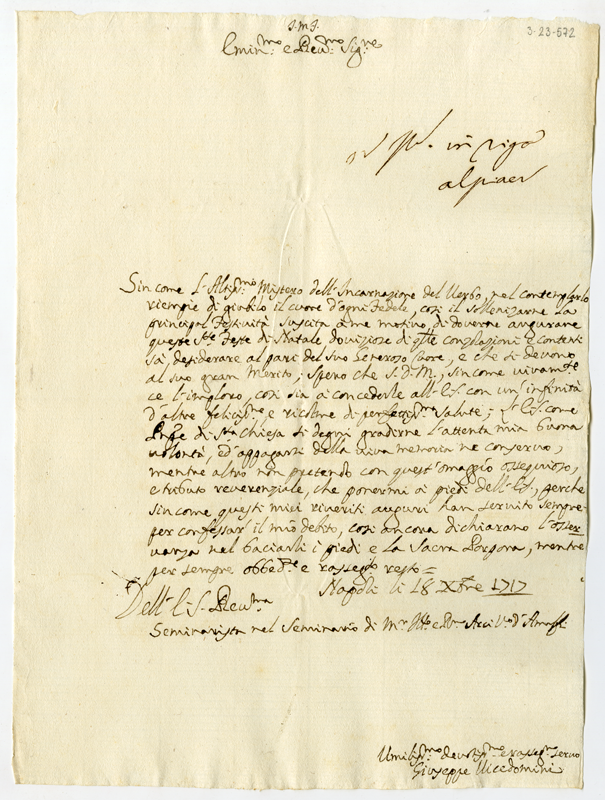 3-23-572
J.M.J.
Emin:mo e Rev:mo Sig:re
in riga
al piacer
Sin come L'Altiss:mo Misterio dell'Incarnazione del Verbo, nel contemplarlo
riempie di giubilo il cuore d'ogni Fedele, così il sollenizarne La
principal Festività suscita a me motivo, di doverne augurare
queste S:te Feste di Natale doviziose di q:lle consolazioni e contenti
sa desiderare al pari del suo cuore, e che si devono
al suo gran Merito; spero che S.D.M., sincome vivam:te
ce l'imploro, così sia a concederle all'E.S. con un'infinità
d'altre e ricolme di salute; E.S. come
Pnpe di S:ta Chiesa si degni gradirne l'attenta mia buona
volontà, ed'appagarsi della viva memoria ne conservo,
mentre altro non pretendo con quest'omaggio ossequioso,
e tributo reverenziale, che ponermi ai piedi dell'E.S., perche
sincome questi miei riveriti auguri han servito sempre
per confessar il mio debito, così ancora dichiarano l'osser
vanza nel baciarli i piedi e La Sacra Porpora, mentre
per sempre obbed:te e rasseg:to resto=
Napoli li 18 Xbre 1717
Dell'E.S. Rev:ma
Seminarista nel Seminario di M:r
Umiliss:mo devotiss:mo e rasseg:mo servo
Giuseppe Vicedomini